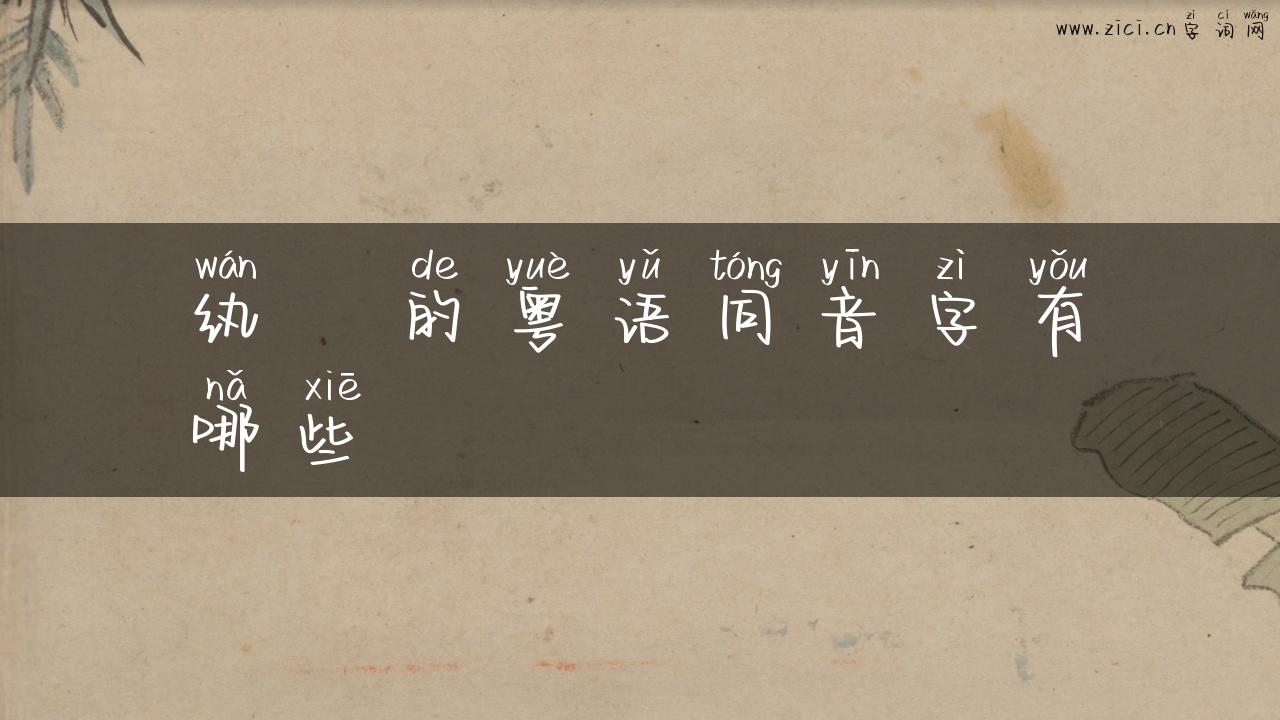 www.zici.cn 字词网
zì cí wǎng
wán de yuè yǔ tóng yīn zì yǒu
纨 的粤语同音字有
nǎ xiē
哪些